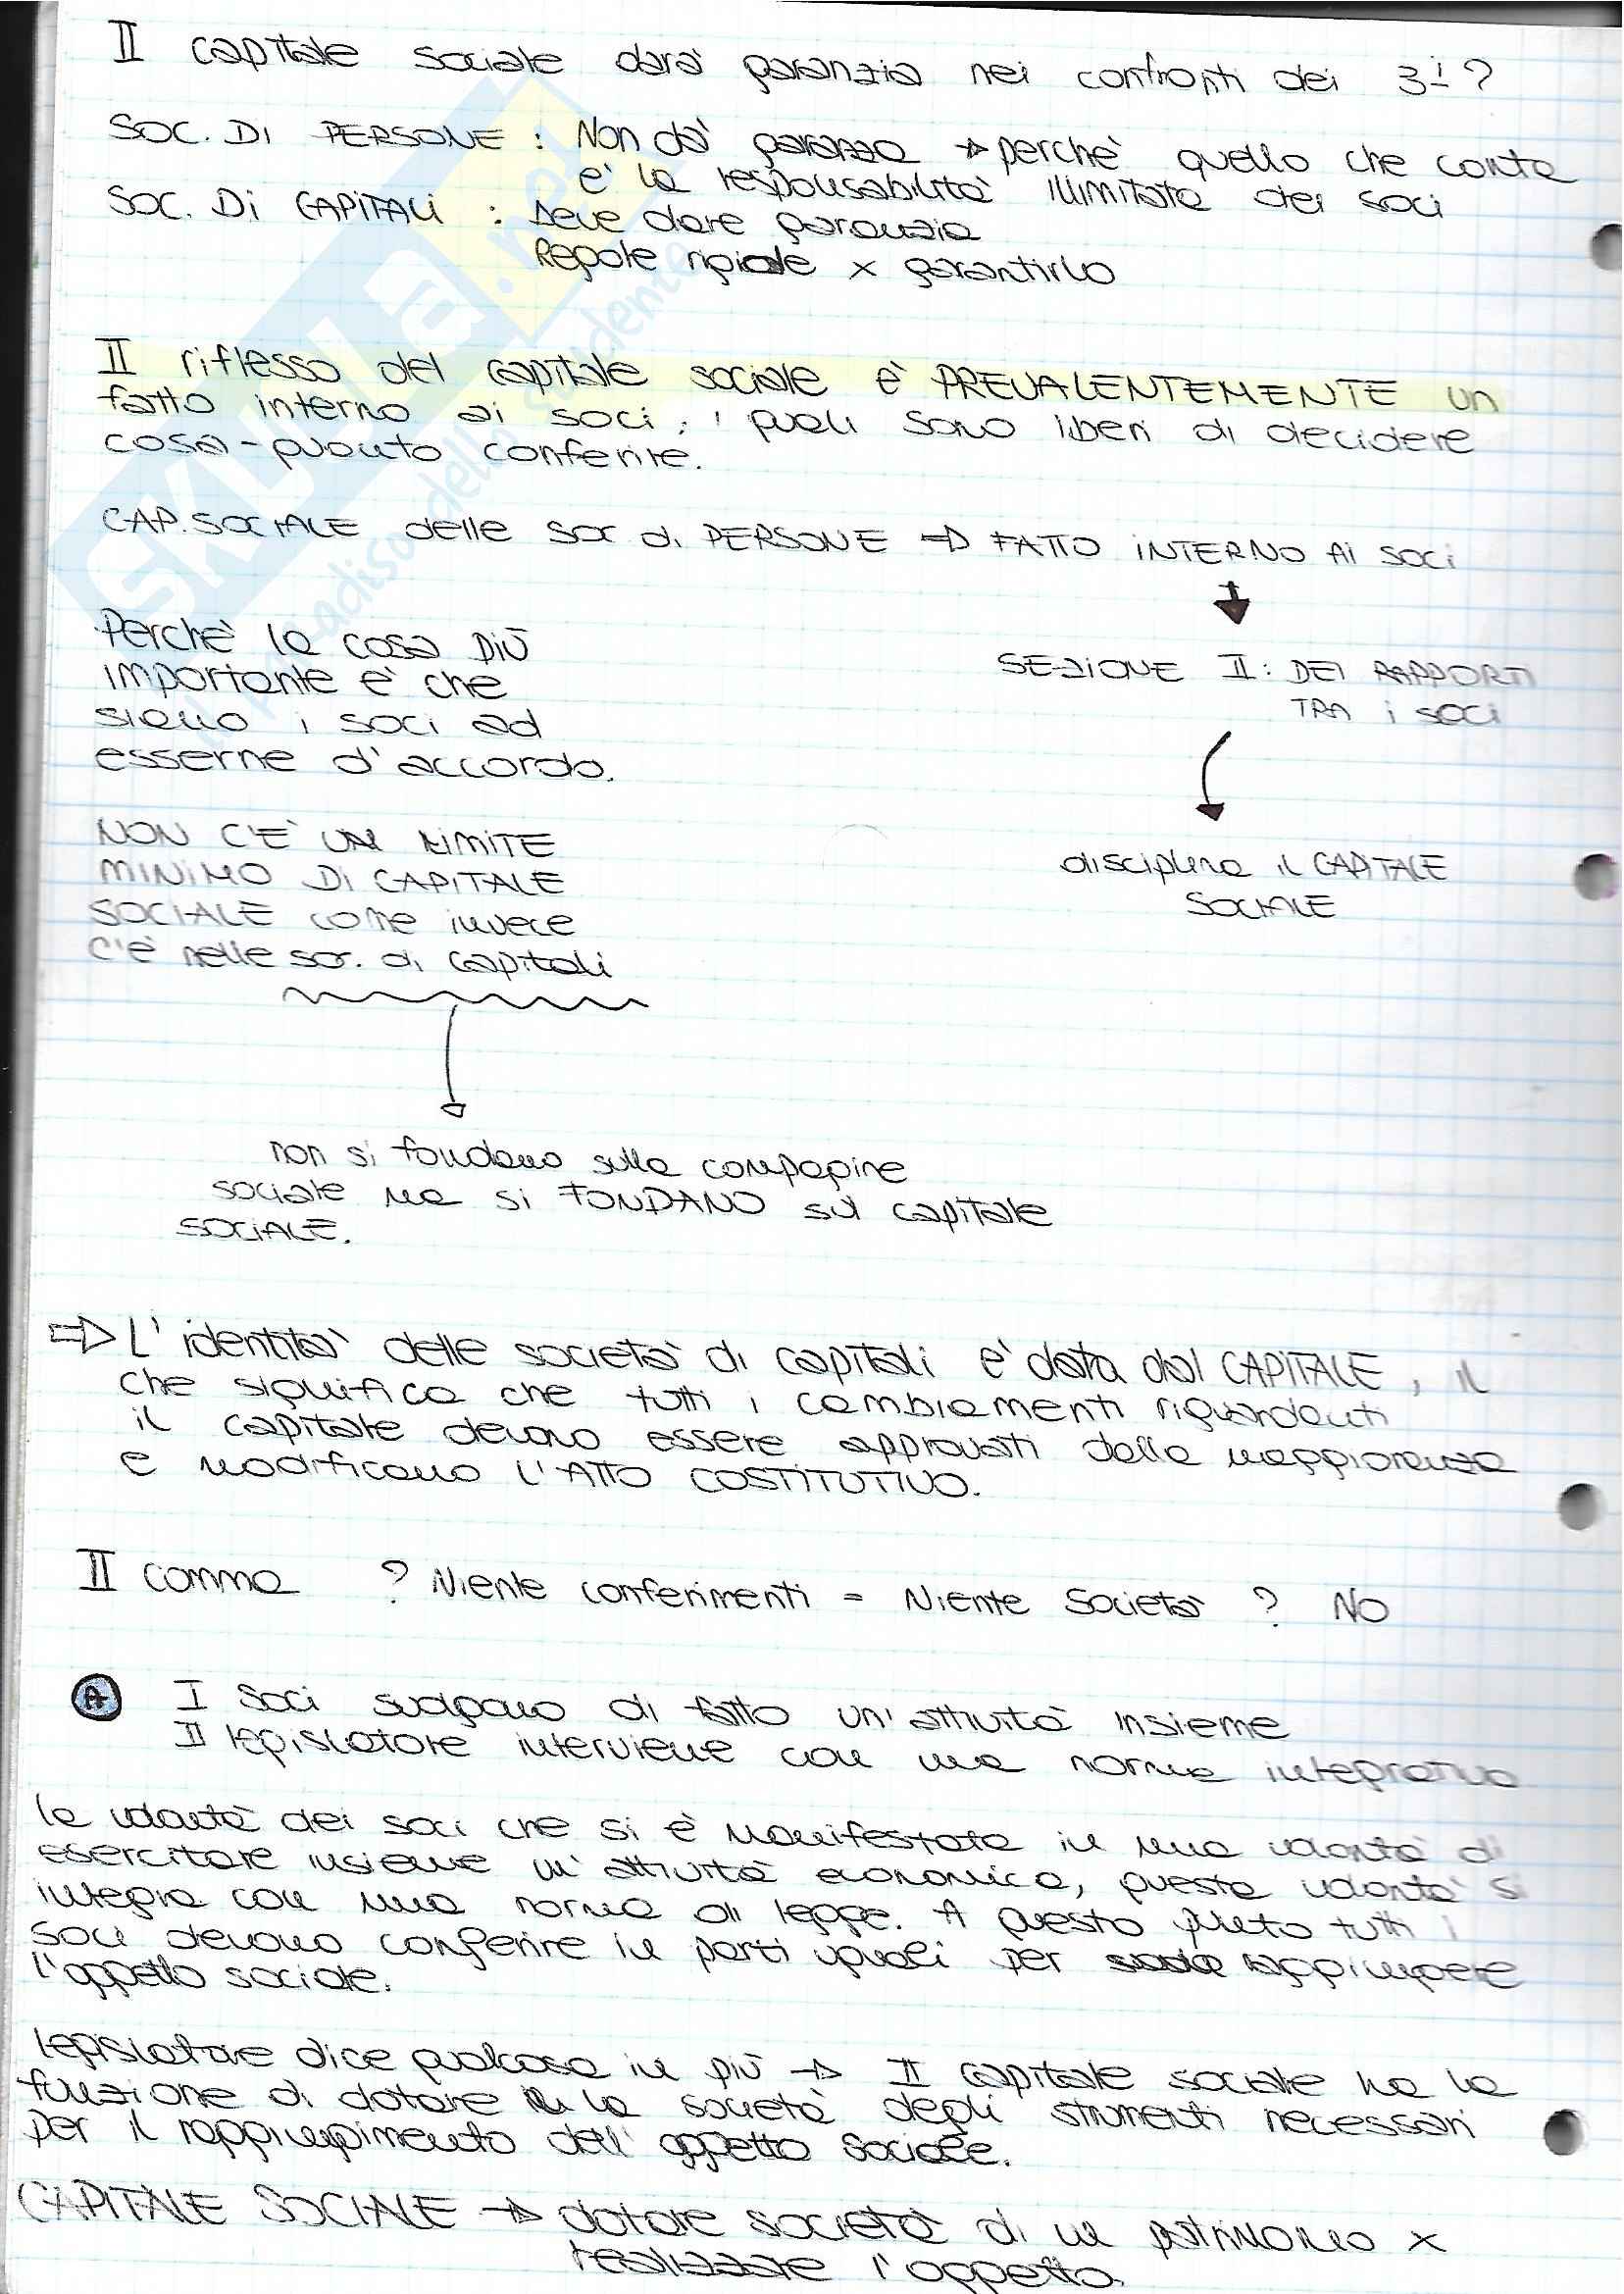 Il capitale sociale darà garanzia nei confronti dei 3i?
SOC. DI PERSONE : Non dà garanzia → perchè quello che conta
è la responsabilità illimitata dei soci
SOC. DI CAPITALI : Deve dare garanzia
Regole rigide x garantirlo
Il riflesso del capitale sociale è PREVALENTEMENTE un
fatto interno ai soci, i quali sono liberi di decidere
cosa-quanto conferire.
CAP. SOCIALE delle soc di PERSONE ⇒ FATTO INTERNO AI SOCI
Perchè la cosa più
importante è che
siano i soci ad
esserne d'accordo.
SEZIONE II: DEI RAPPORTI
TRA i SOCI
disciplina il CAPITALE
SOCIALE
NON C'È UN LIMITE
MINIMO DI CAPITALE
SOCIALE come invece
c'è nelle soc. di capitali
non si fondano sulla compagine
sociale ma si FONDANO sul capitale
SOCIALE.
⇒ L'identità delle società di capitali è data dal CAPITALE, il
che significa che tutti i cambiamenti riguardanti
il capitale devono essere approvati dalla maggioranza
e modificano l'ATTO COSTITUTIVO.
II comma ? Niente conferimenti = Niente Società ? NO
A I soci svolgono di fatto un'attività insieme
Il legislatore interviene con una norma integrativa
la volontà dei soci che si è manifestata in una volontà di
esercitare insieme un'attività economica, questa volontà si
integra con una norma di legge. A questo punto tutti i
soci devono conferire in parti uguali per raggiungere
l'oggetto sociale.
legislatore dice qualcosa in più → Il capitale sociale ha la
funzione di dotare la società degli strumenti necessari
per il raggiungimento dell'oggetto sociale.
CAPITALE SOCIALE → dotare società di un patrimonio x
realizzare l'oggetto.
skuola.net
paradiso dello studente